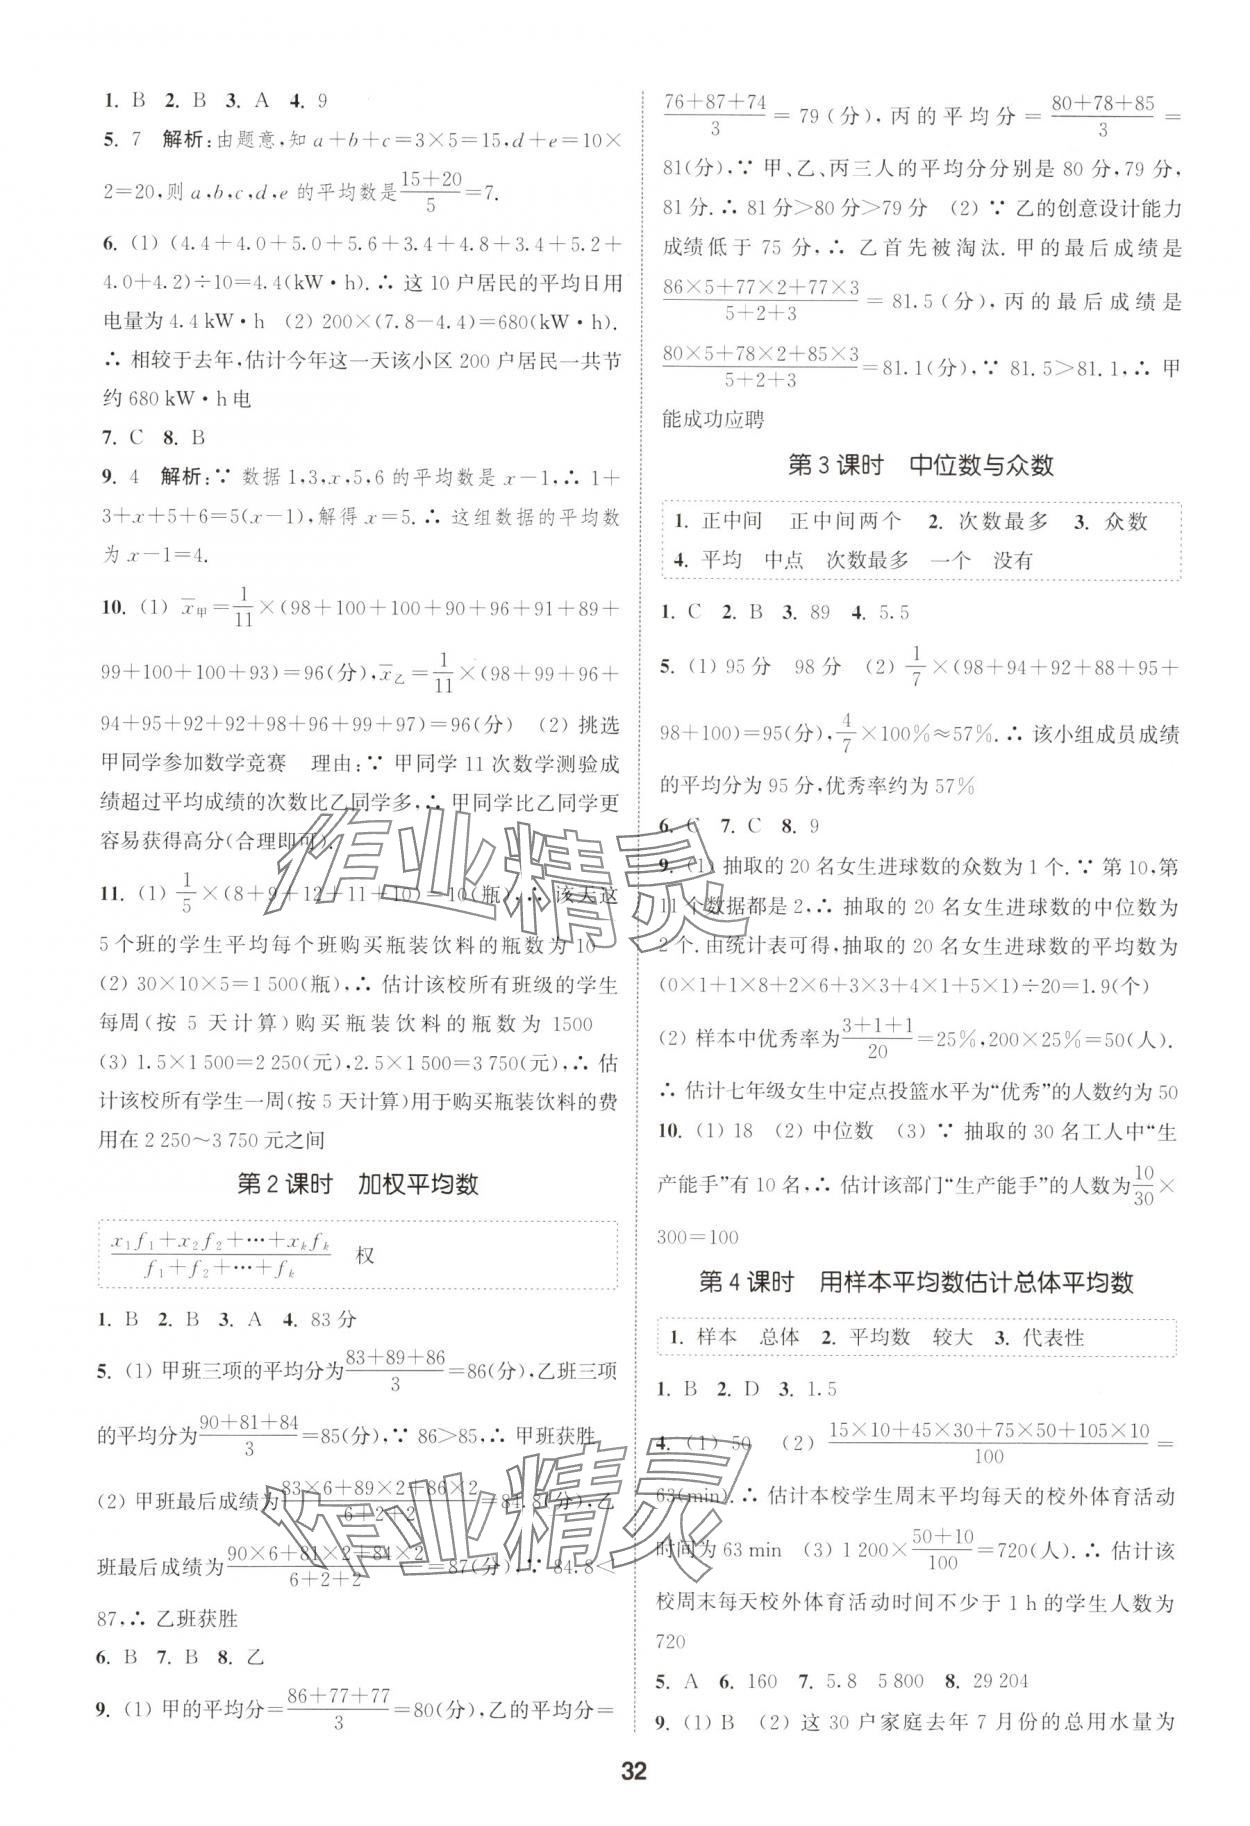 1. B  2. B  3. A  4. 9
5. 7  解析:由题意,知 a+b+c=3×5=15,d+e=10×
2=20,则 a,b,c,d,e 的平均数是(15+20)/5=7.
6. (1) (4.4+4.0+5.0+5.6+3.4+4.8+3.4+5.2+
4.0+4.2)÷10=4.4(kW·h).∴ 这 10 户居民的平均日用
电量为 4.4 kW·h  (2) 200×(7.8-4.4)=680(kW·h).
∴ 相较于去年,估计今年这一天该小区 200 户居民一共节
约 680 kW·h 电
7. C  8. B
9. 4  解析:∵ 数据 1,3,x,5,6 的平均数是 x-1,∴ 1+
3+x+5+6=5(x-1),解得 x=5.∴ 这组数据的平均数
为 x-1=4.
10. (1) x̄甲=1/11×(98+100+100+90+96+91+89+
99+100+100+93)=96(分),x̄乙=1/11×(98+99+96+
94+95+92+92+98+96+99+97)=96(分)  (2) 挑选
甲同学参加数学竞赛  理由:∵ 甲同学 11 次数学测验成
绩超过平均成绩的次数比乙同学多,∴ 甲同学比乙同学更
容易获得高分(合理即可).
11. (1) 1/5×(8+9+12+11+10)=10(瓶),∴ 该天这
5 个班的学生平均每个班购买瓶装饮料的瓶数为 10
(2) 30×10×5=1 500(瓶),∴ 估计该校所有班级的学生
每周(按 5 天计算)购买瓶装饮料的瓶数为 1500
(3) 1.5×1 500=2 250(元),2.5×1 500=3 750(元),∴ 估
计该校所有学生一周(按 5 天计算)用于购买瓶装饮料的费
用在 2 250～3 750 元之间
第 2 课时  加权平均数
(x₁f₁+x₂f₂+⋯+xₖfₖ)/(f₁+f₂+⋯+fₖ)  权
1. B  2. B  3. A  4. 83 分
5. (1) 甲班三项的平均分为(83+89+86)/3=86(分),乙班三项
的平均分为(90+81+84)/3=85(分),∵ 86>85,∴ 甲班获胜
(2) 甲班最后成绩为(83×6+89×2+86×2)/(6+2+2)=84.8(分),乙
班最后成绩为(90×6+81×2+84×2)/(6+2+2)=87(分),∵ 84.8<
87,∴ 乙班获胜
6. B  7. B  8. 乙
9. (1) 甲的平均分=(86+77+77)/3=80(分),乙的平均分=
(76+87+74)/3=79(分),丙的平均分=(80+78+85)/3=
81(分),∵ 甲、乙、丙三人的平均分分别是 80 分,79 分,
81 分.∴ 81 分>80 分>79 分  (2) ∵ 乙的创意设计能力
成绩低于 75 分,∴ 乙首先被淘汰.甲的最后成绩是
(86×5+77×2+77×3)/(5+2+3)=81.5(分),丙的最后成绩是
(80×5+78×2+85×3)/(5+2+3)=81.1(分),∵ 81.5>81.1,∴ 甲
能成功应聘
第 3 课时  中位数与众数
1. 正中间  正中间两个  2. 次数最多  3. 众数
4. 平均  中点  次数最多  一个  没有
1. C  2. B  3. 89  4. 5.5
5. (1) 95 分  98 分  (2) 1/7×(98+94+92+88+95+
98+100)=95(分),4/7×100%≈57%.∴ 该小组成员成绩
的平均分为 95 分,优秀率约为 57%
6. C  7. C  8. 9
9. (1) 抽取的 20 名女生进球数的众数为 1 个.∵ 第 10,第
11 个数据都是 2,∴ 抽取的 20 名女生进球数的中位数为
2 个.由统计表可得,抽取的 20 名女生进球数的平均数为
(0×1+1×8+2×6+3×3+4×1+5×1)÷20=1.9(个)
(2) 样本中优秀率为(3+1+1)/20=25%,200×25%=50(人).
∴ 估计七年级女生中定点投篮水平为“优秀”的人数约为 50
10. (1) 18  (2) 中位数  (3) ∵ 抽取的 30 名工人中“生
产能手”有 10 名,∴ 估计该部门“生产能手”的人数为10/30×
300=100
第 4 课时  用样本平均数估计总体平均数
1. 样本  总体  2. 平均数  较大  3. 代表性
1. B  2. D  3. 1.5
4. (1) 50  (2) (15×10+45×30+75×50+105×10)/100=
63(min).∴ 估计本校学生周末平均每天的校外体育活动
时间为 63 min  (3) 1 200×(50+10)/100=720(人).∴ 估计该
校周末每天校外体育活动时间不少于 1 h 的学生人数为
720
5. A  6. 160  7. 5.8  5 800  8. 29 204
9. (1) B  (2) 这 30 户家庭去年 7 月份的总用水量为
32
作业精灵
作业精灵